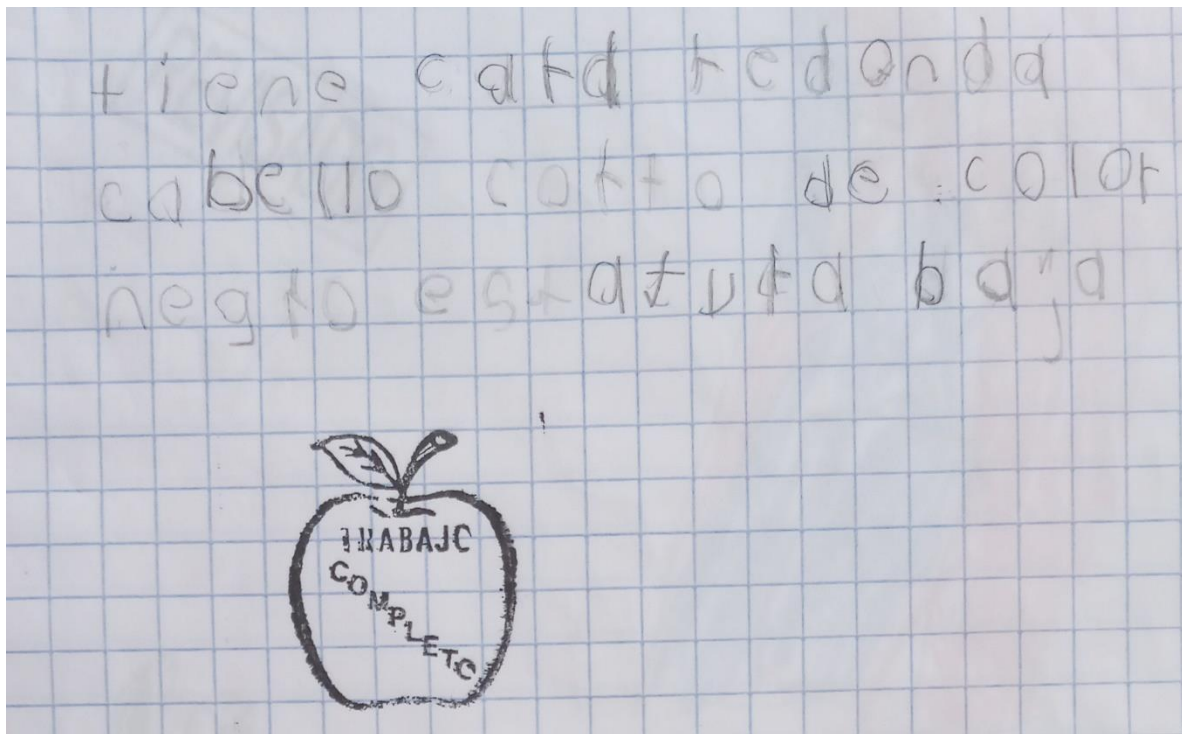 tiene cara redonda
cabello corto de color
negro estatura baja
TRABAJO
COMPLETO